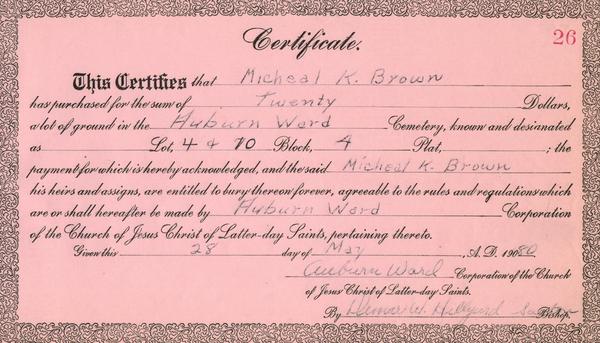 Certificate.
26
This Certifies that Micheal K. Brown
has purchased for the sum of Twenty Dollars,
a lot of ground in the Auburn Ward Cemetery, known and desianated
as Lot, 4 & 10 Block, 4 Plat, ; the
payment for which is hereby acknowledged, and the said Micheal K. Brown
his heirs and assigns, are entitled to bury thereon forever, agreeable to the rules and regulations which
are or shall hereafter be made by Auburn Ward Corporation
of the Church of Jesus Christ of Latter-day Saints, pertaining thereto.
Given this 28 day of May, A. D. 19080
Auburn Ward Corporation of the Church
of Jesus Christ of Latter-day Saints.
By W. Bishop.